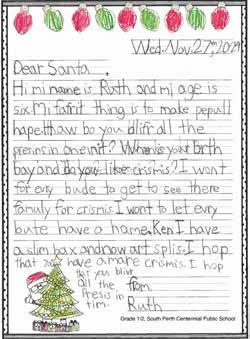 Wed. Nov. 27th, 2024
Dear Santa,
Hi mi name is Ruth and mi age is
six. Mi farit thing is to make pepull
hape. Haw bo you dlifr all the
presins in one nit? When is your birth
bay and Do you like crismis? I wont
for evry bude to get to see there
famuly for crismis. I wont to let evry
bute have a home. Ken I have
a slim bax and now art splis. I hop
that you have a mare crismis. I hop
that you blivr
all the
presis in
tim.
from
Ruth
Grade 1/2, South Perth Centennial Public School